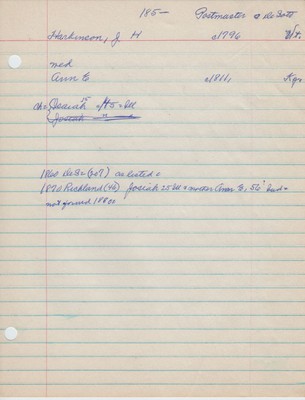 185- Postmaster @ DeSoto
Harbinson, J H c1796 Vt.
med
Ann E c1811, Ky
ch= Josiah 15 Ill
Josiah "
1860 DeSo (207) as listed =
1870 Richland (42) Josiah 25 Ill & mother Ann E, 56
not found 1880